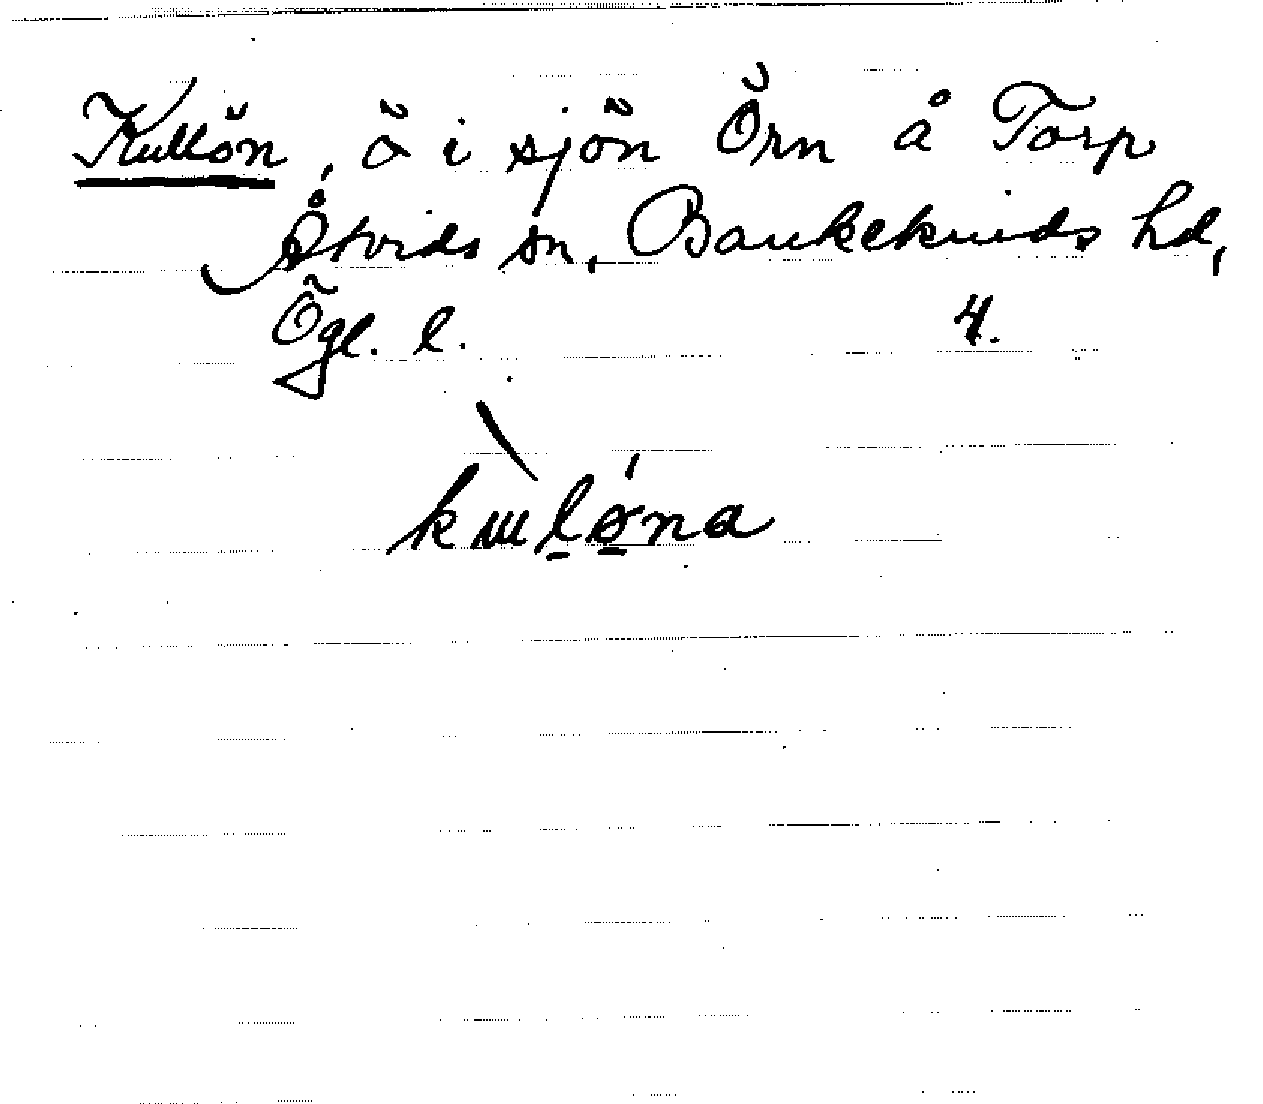 Kullön, ö i sjön Örn å Torp
Åtvids sn, Bankekinds hd,
Ögl. l. 4.
kuḷǿ̱na